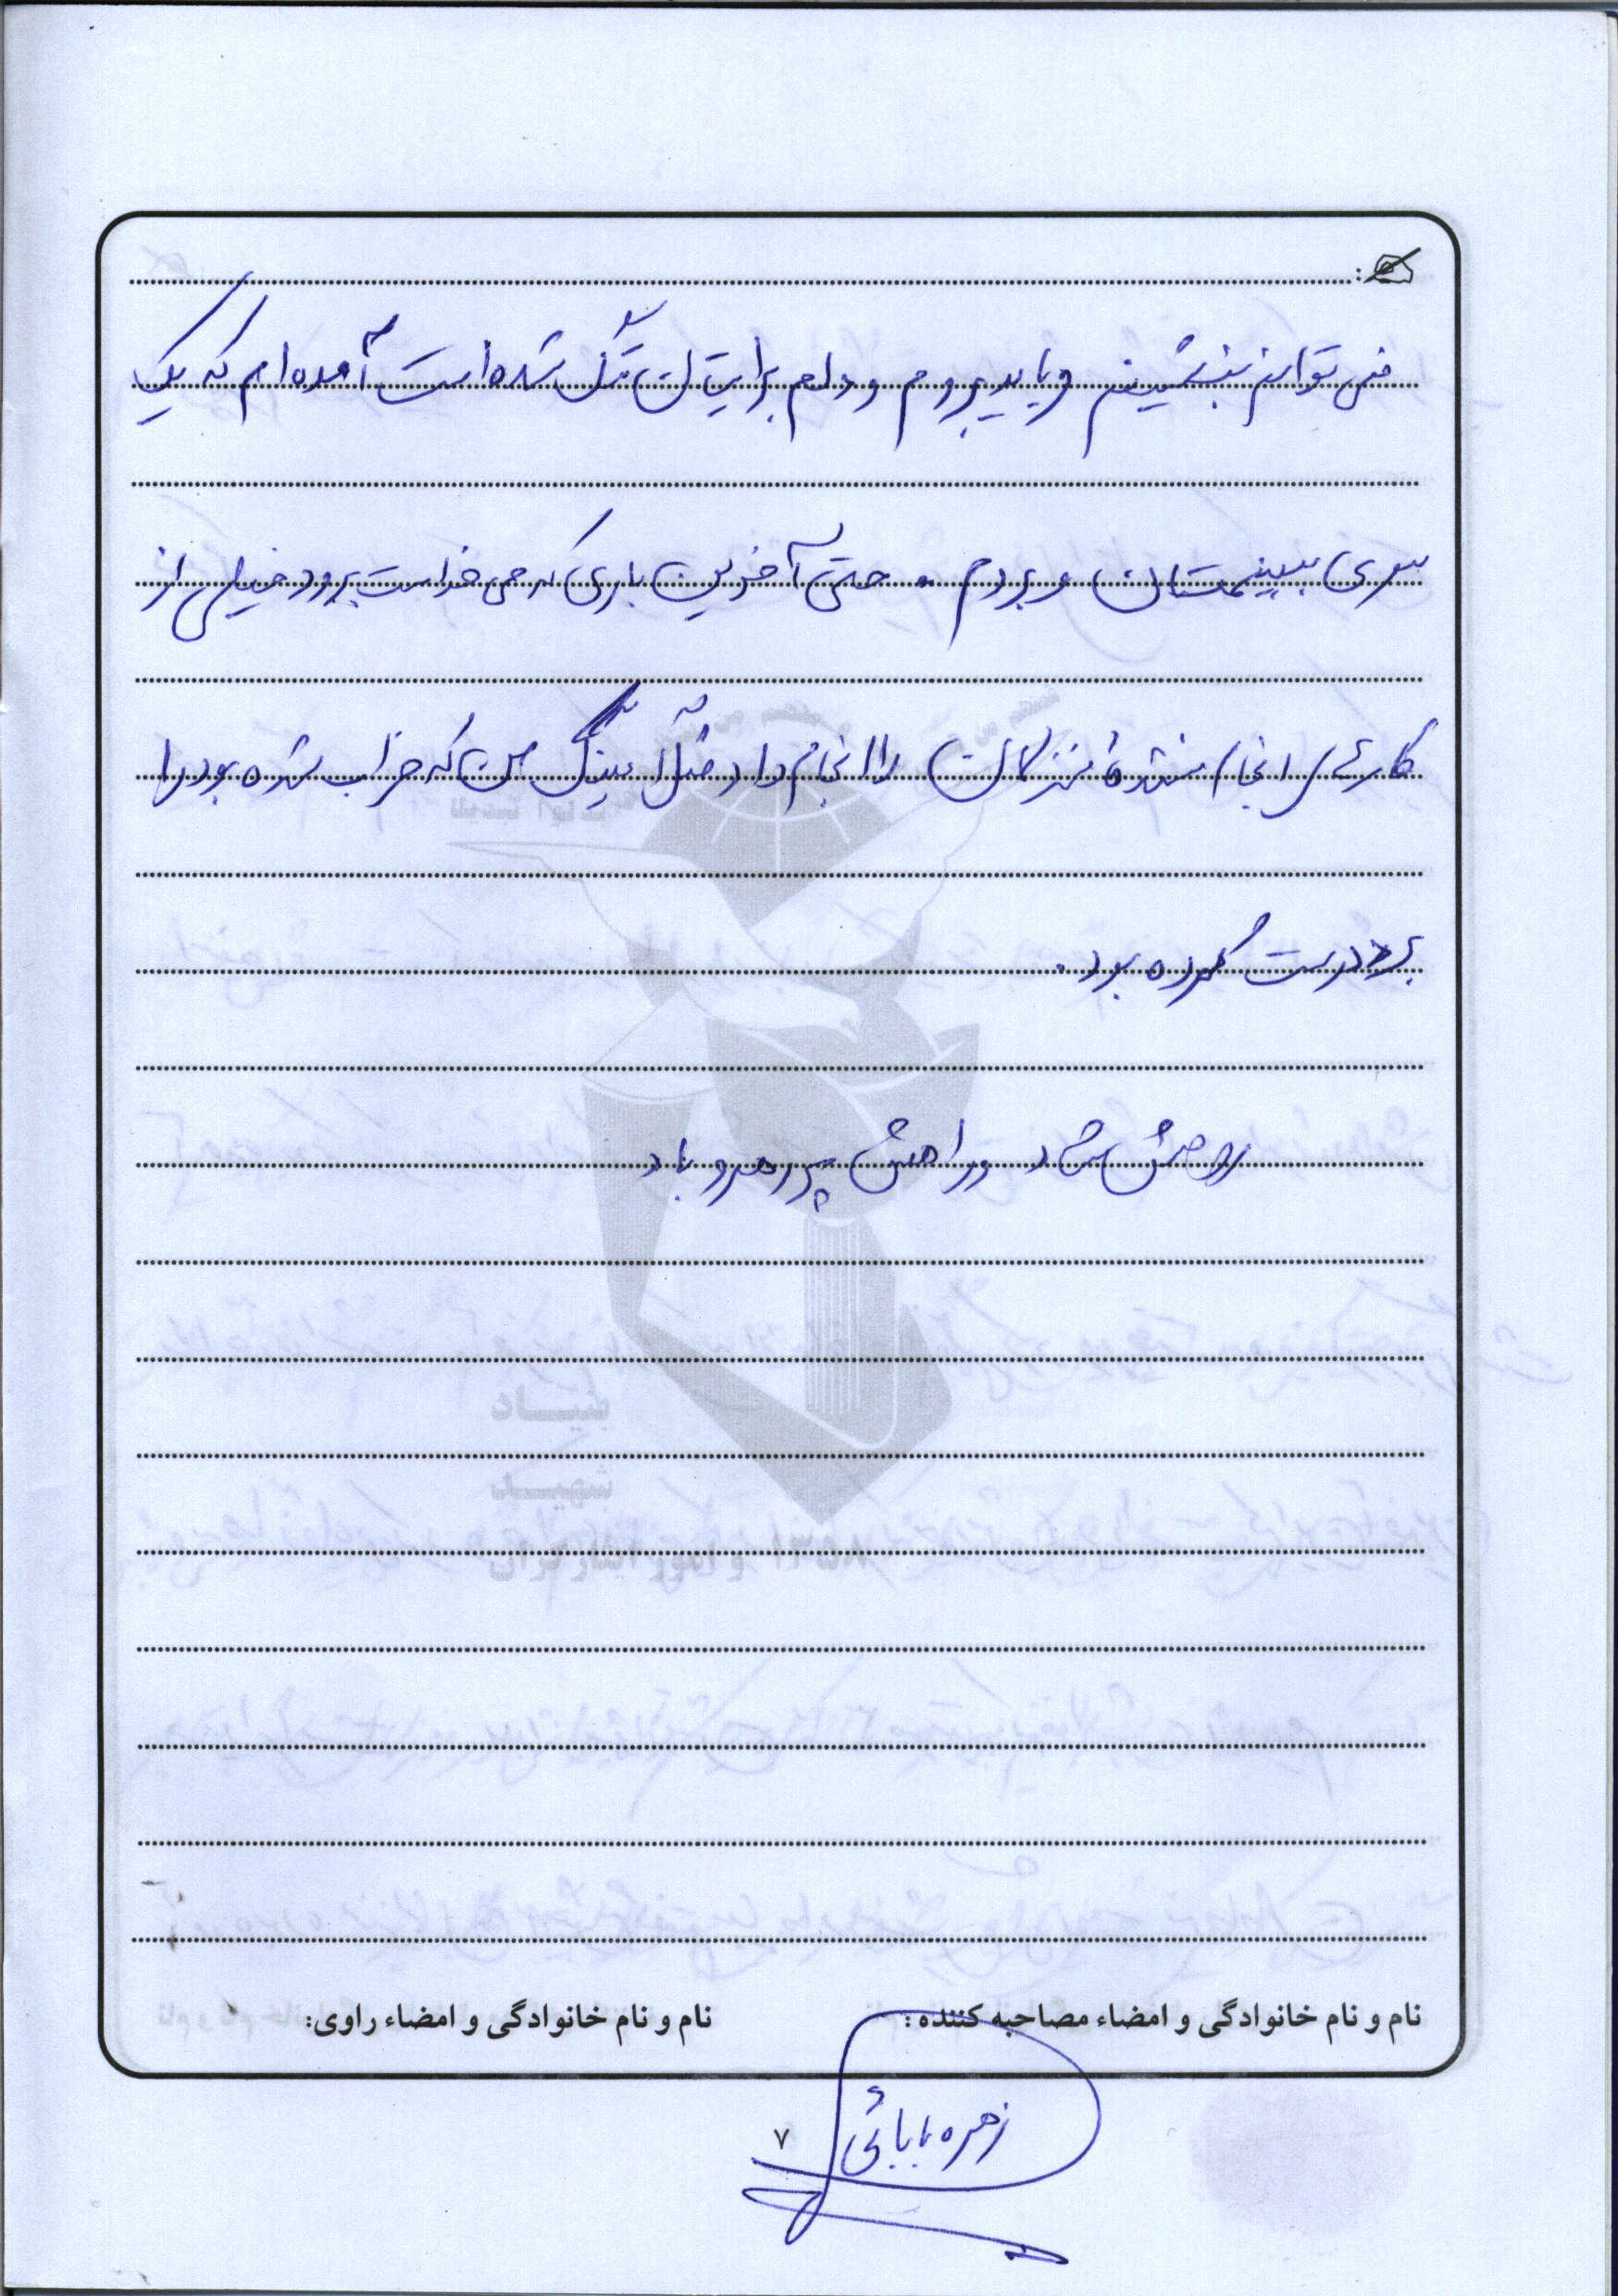 نمی توانم بنشینم و باید بروم و دلم برایتان تنگ شده است آمده ام که یک
سری ببینمتان و بروم . حتی آخرین باری که می خواست برود خیلی از
کارهای انجام نشدهٔ منزلمان را انجام داد مثلاً سینک من که خراب شده بود را
درست کرده بود .
روحش شاد و راهش پر رهرو باد
نام و نام خانوادگی و امضاء مصاحبه کننده :
نام و نام خانوادگی و امضاء راوی:
زهره بابائی
۷